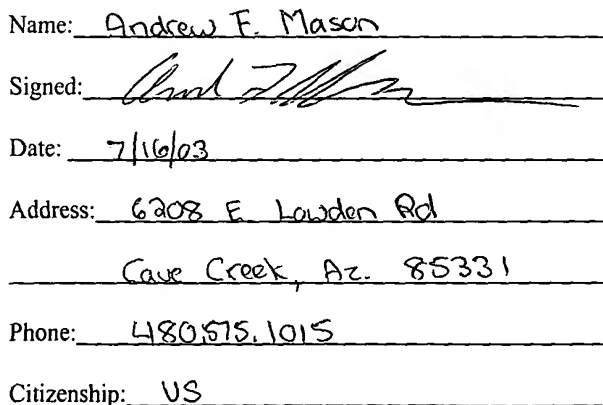 Name: Andrew F. Mason
Signed:
Date: 7/16/03
Address: 6208 E. Lowden Rd
Cave Creek, Az. 85331
Phone: 480.575.1015
Citizenship: US